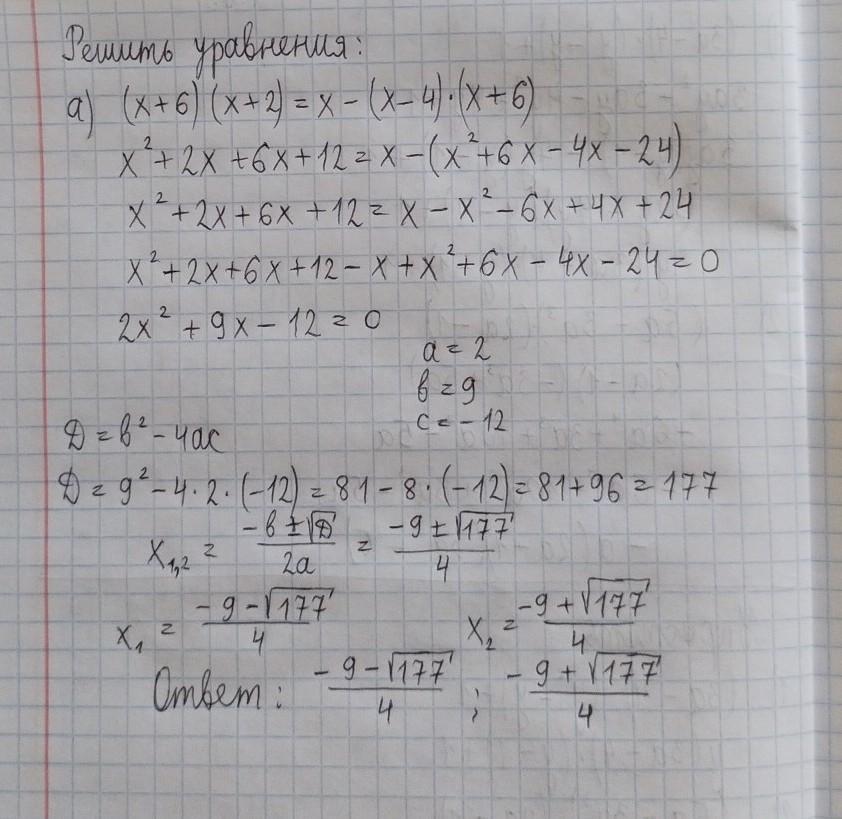 Решить уравнения:
а) (x+6)(x+2) = x - (x-4)·(x+6)
x²+2x+6x+12 = x - (x²+6x-4x-24)
x²+2x+6x+12 = x - x² - 6x + 4x + 24
x²+2x+6x+12 - x + x² + 6x - 4x - 24 = 0
2x² + 9x - 12 = 0
a = 2
в = 9
c = -12
Д = в² - 4ac
Д = 9² - 4·2·(-12) = 81 - 8·(-12) = 81 + 96 = 177
x₁,₂ = (-в ± √Д)/2a = (-9 ± √177)/4
x₁ = (-9 - √177)/4 x₂ = (-9 + √177)/4
Ответ: (-9 - √177)/4 ; (-9 + √177)/4